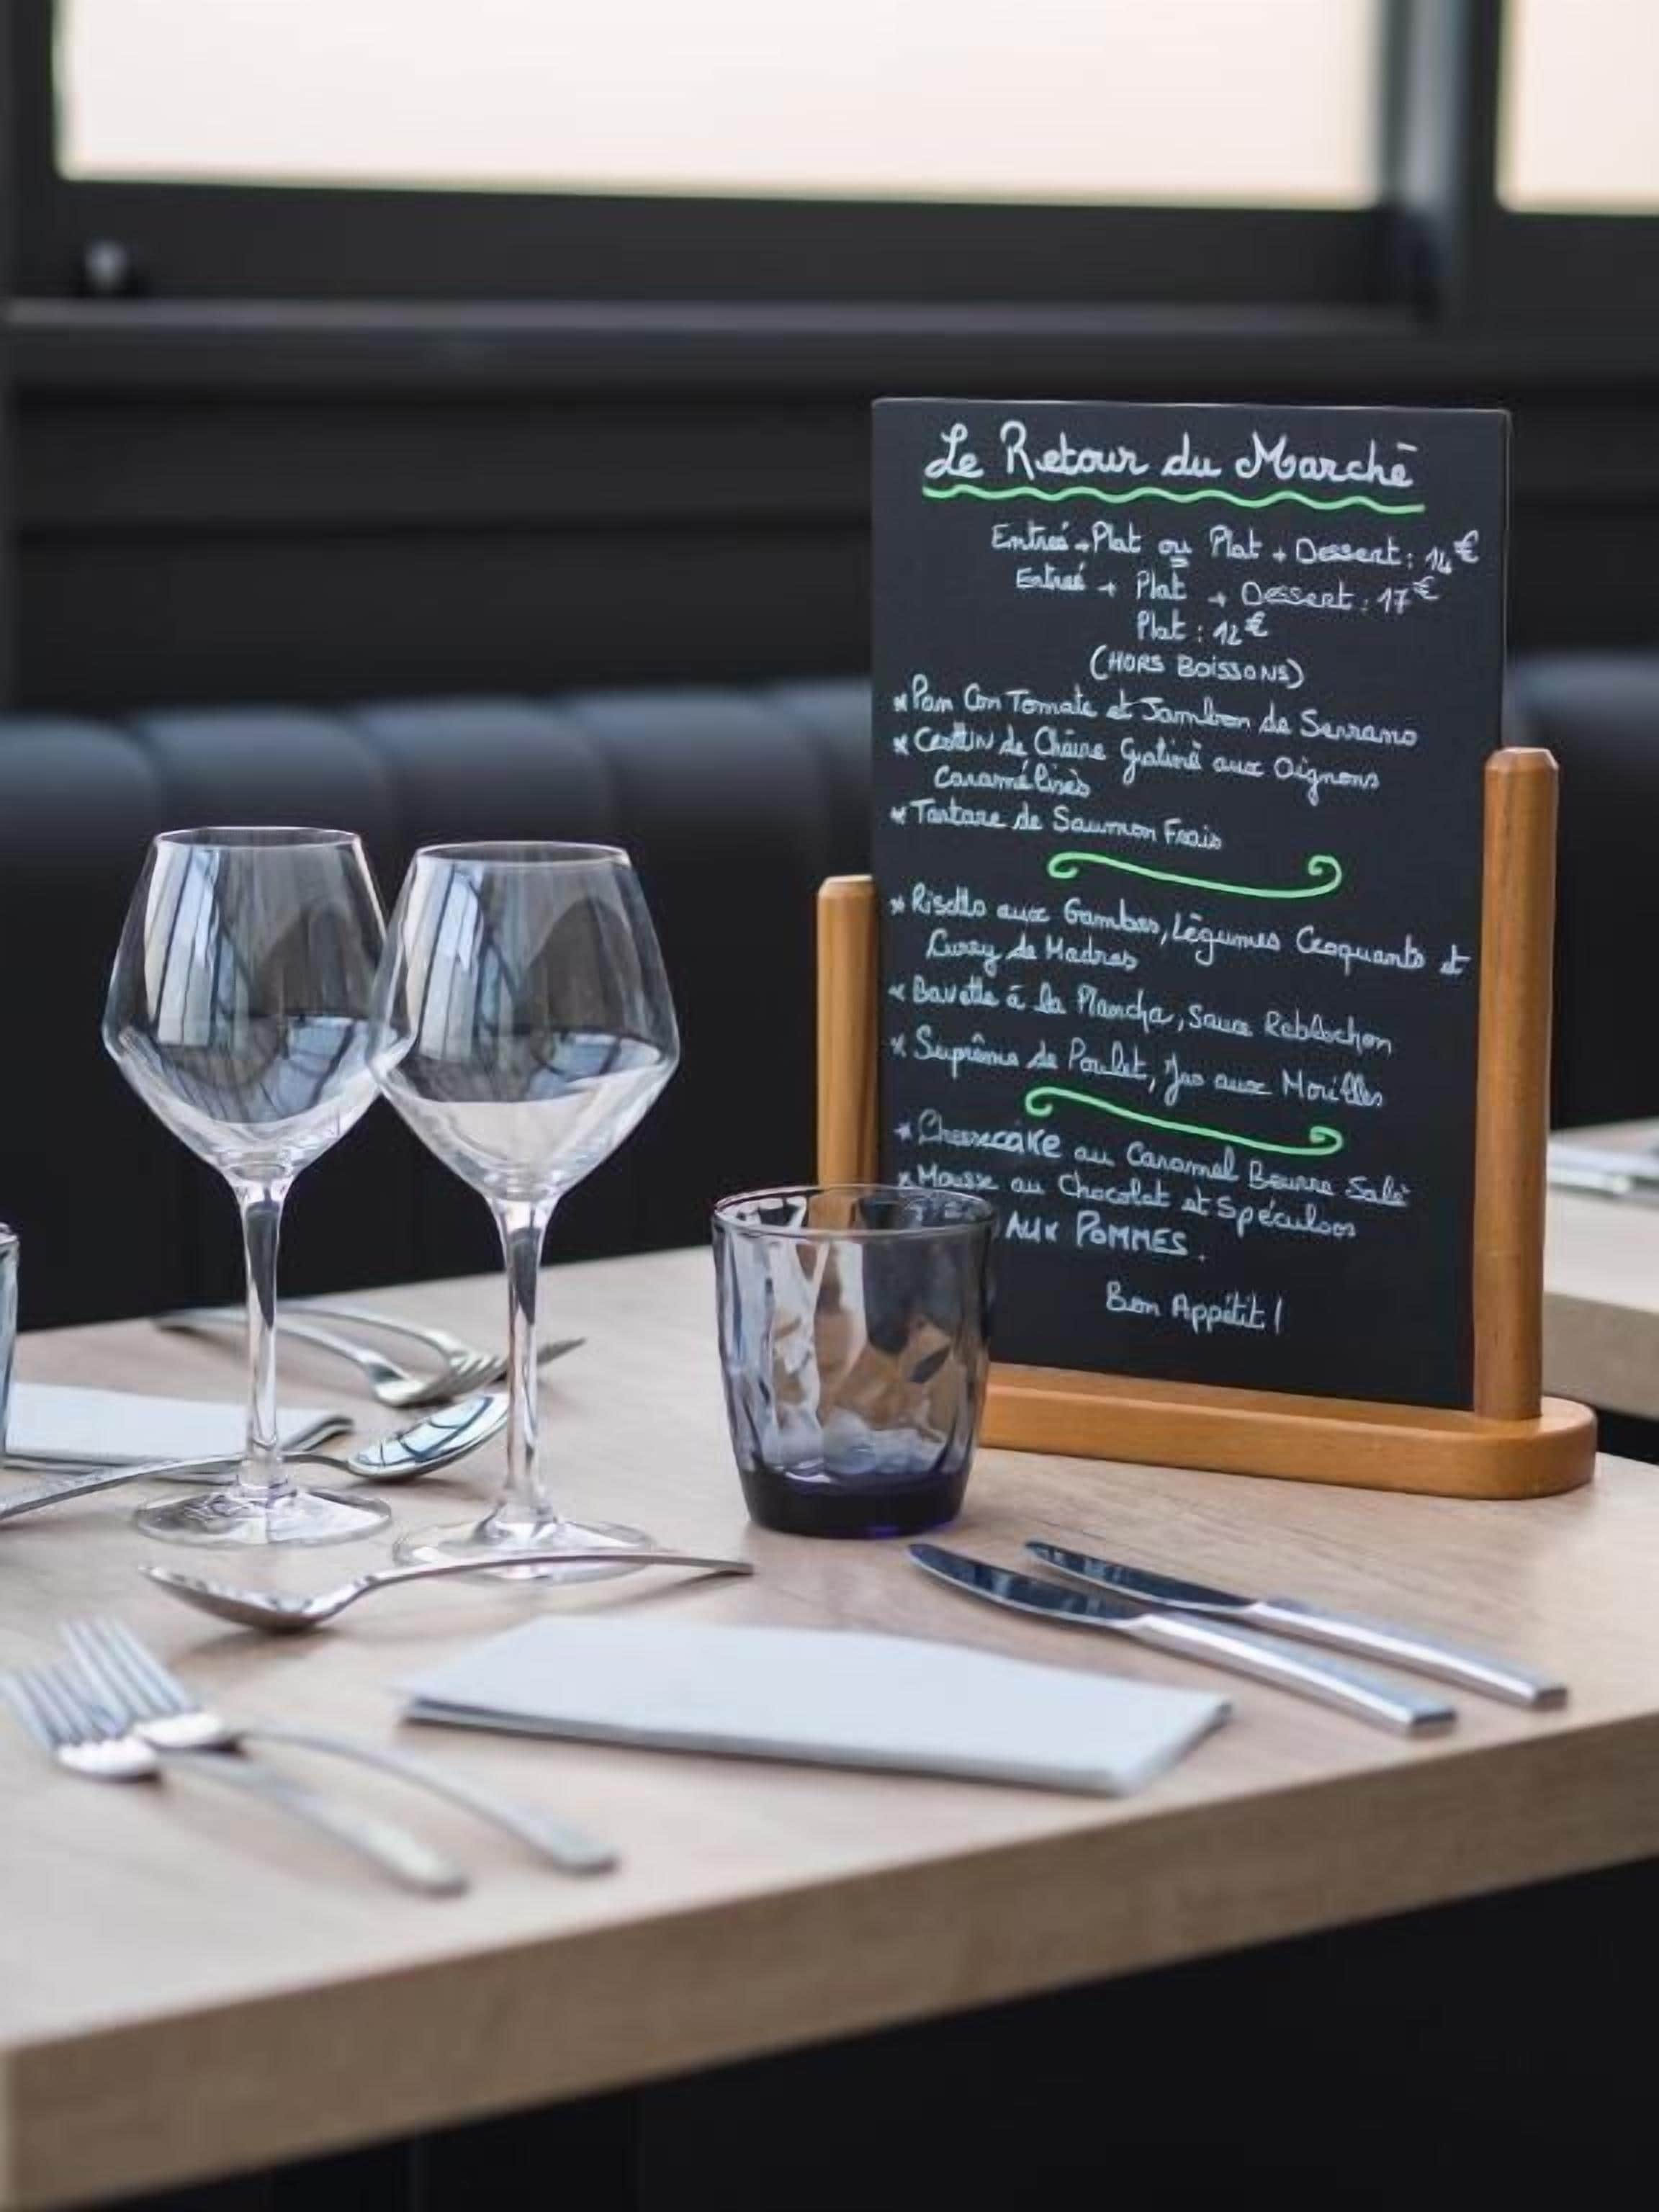 Le Retour du Marché
Entreé + Plat ou Plat + Dessert : 14€
Entreé + Plat + Dessert : 17€
Plat : 12€
(HORS BOISSONS)
* Pan Con Tomate et Jambon de Serrano
* de Chèvre Gratiné aux Oignons
Caramélisés
* Tartare de Saumon Frais
* Risotto aux Gambas, Légumes Croquants et
Curry de Madras
* Bavette à la Plancha, Sauce Reblochon
* Suprême de Poulet, Jus aux Morilles
* Cheesecake au Caramel Beurre Salé
* Mousse au Chocolat et Spéculoos
AUX POMMES.
Bon Appétit !